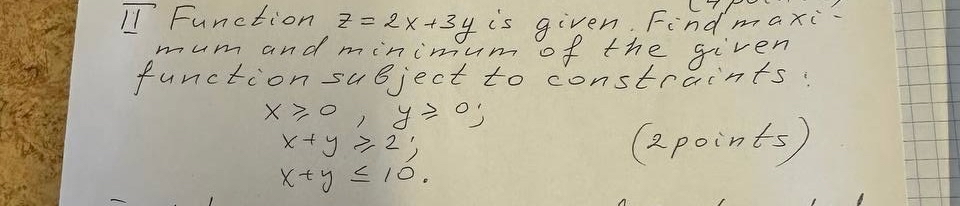 II Function z = 2x+3y is given. Find maxi-
mum and minimum of the given
function subject to constraints:
x ⩾ 0, y ⩾ 0;
x+y ⩾ 2;
(2 points)
x+y ≤ 10.